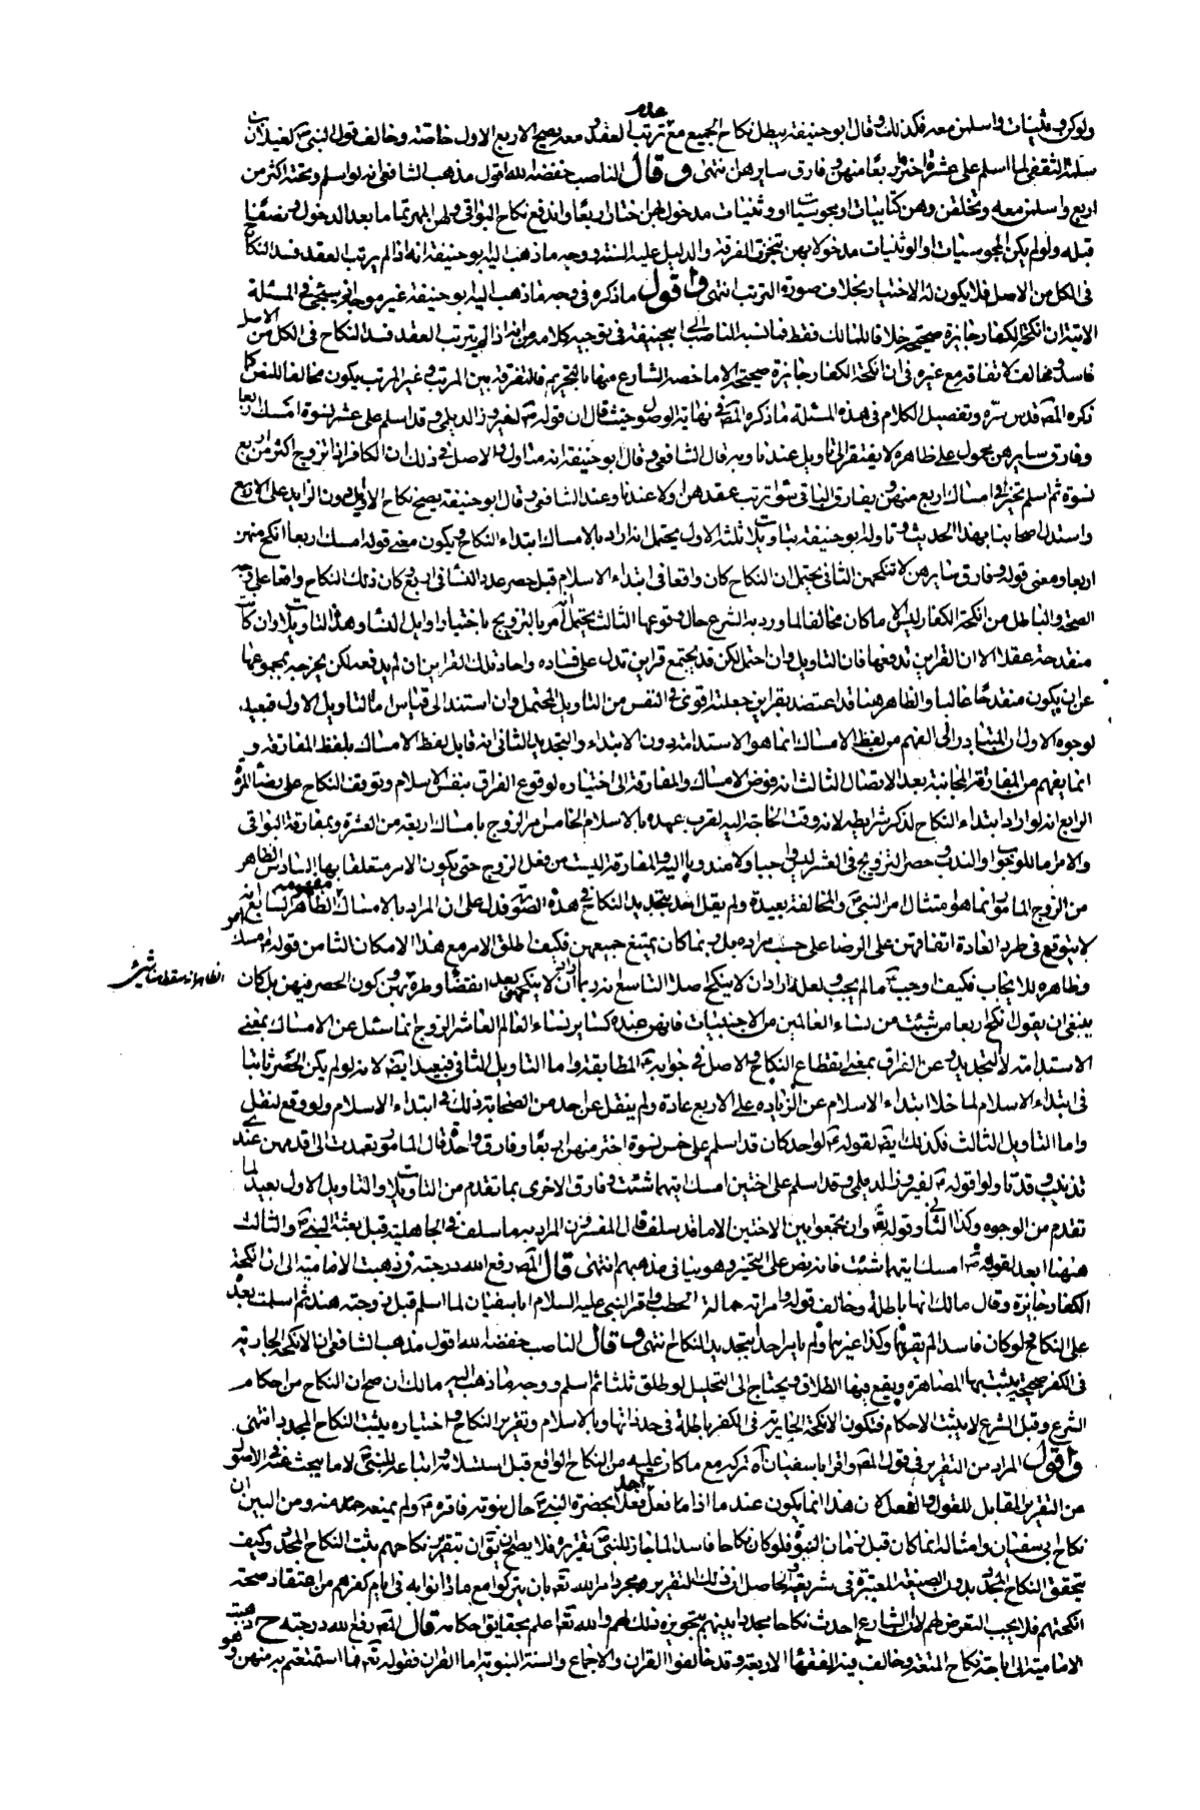 ولو كن وثنيات واسلمن معه فكذلك وقال ابو حنيفة يبطل نكاح الجميع مع عدم ترتب العقد ومعه يصح الاربع الاول خاصة وخالف قول النبي ص لغيلان بن
سلمة الثقفي لما اسلم على عشرة اختر اربعا منهن وفارق سايرهن انتهى وقال الناصب خفضه الله اقول مذهب الشافعي انه لو اسلم وتحته اكثر من
اربع واسلمن معه وتخلفن وهن كتابيات او مجوسيات او وثنيات مدخول بهن اختار اربعا واندفع نكاح البواقي ولهن المهر تماما بعد الدخول ونصفا
قبله ولو لم يكن المجوسيات او الوثنيات مدخولا بهن تنجزت الفرقة والدليل عليه السنة ووجه ما ذهب اليه ابو حنيفة انه اذا لم يرتب العقد فسد النكاح
في الكل من الاصل فلا يكون له الاختيار بخلاف صورة الترتب انتهى واقول ما ذكره في وجه ما ذهب اليه ابو حنيفة غير موجه اذ سيجئ في المسئلة
الاتية ان انكحة الكفار جايزة صحيحة خلافا لمالك فقط فما نسبه الناصب الى ابي حنيفة في توجيه كلامه من انه اذا لم يترتب العقد فسد النكاح في الكل من الاصل
فاسد ومخالف لاتفاقه مع غيره في ان انكحة الكفار جايزة صحيحة الا ما خصه الشارع منها بالتحريم فالتفرقة بين المرتب وغير المرتب يكون مخالفا للنص كما
ذكره المص قدس سره وتفصيل الكلام في هذه المسئلة ما ذكره المص في نهاية الوصول حيث قال ان قوله ص لفيروز الديلمي وقد اسلم على عشر نسوة امسك اربعا
وفارق سايرهن محمول على ظاهره لا يفتقر الى تاويل عندنا وبه قال الشافعي وقال ابو حنيفة انه متاول والاصل في ذلك ان الكافر اذا تزوج اكثر من اربع
نسوة ثم اسلم تخير في امساك اربع منهن ويفارق الباقي سواء ترتب عقدهن او لا عندنا وعند الشافعي وقال ابو حنيفة يصح نكاح الاول دون الزايد على الاربع
واستدل اصحابنا بهذا الحديث وتاوله ابو حنيفة بتاويلات ثلثة الاول يحتمل انه اراد بالامساك ابتداء النكاح ويكون معنى قوله امسك اربعا انكح منهن
اربعا ومعنى قوله وفارق سايرهن لا تنكحهن الثاني يحتمل ان النكاح كان واقعا في ابتداء الاسلام قبل حصر عدد النساء في اربع وكان ذلك النكاح واقعا على وجه
الصحة والباطل من انكحة الكفار ليس الا ما كان مخالفا لما ورد به الشرع حال وقوعها الثالث يحتمل انه امر بالتزويج باختيار اوايل النساء وهذه التاويلات وان كانت
منقدحة عقلا الا ان القراين تدفعها فان التاويل وان احتمل لكن قد يجتمع قراين تدل على فساده واحاد تلك القراين ان لم يدفعه لكن يخرجه بمجموعها
عن ان يكون منقدحا غالبا والظاهر هنا قد اعتضد بقراين جعلته اقوى في النفس من التاويل المحتمل وان استند الى قياس اما التاويل الاول فبعيد
لوجوه الاول ان المتبادر الى الفهم من لفظ الامساك انما هو الاستدامة دون الابتداء والتجديد الثاني انه قابل لفظ الامساك بلفظ المفارقة و
انما يفهم من المفارقة المجانبة بعد الاتصال الثالث انه فوض الامساك والمفارقة الى اختياره لوقوع الفراق بنفس الاسلام وتوقف النكاح على رضا المراة
الرابع انه لو اراد ابتداء النكاح لذكر شرايطه لانه وقت الحاجة اليه لقرب عهده بالاسلام الخامس امر الزوج بامساك اربعة من العشرة وبمفارقة البواقي
والامر اما للوجوب او الندب وحصر التزويج في العشر ليس واجبا ولا مندوبا اليه والمفارقة ليست من فعل الزوج حتى يكون الامر متعلقا بها السادس الظاهر
من الزوج المامور انما هو امتثال امر النبي ص والمخالفة بعيدة ولم يقل احد بتجديد النكاح في هذه الصورة فدل على ان المراد بالامساك الظاهر مفهومه السابع انه
لا يتوقع في طرد العادة اتفاقهن على الرضا على حسب مراده بل ربما كان يمتنع جميعهن فكيف اطلق الامر مع هذا الامكان الثامن قوله امسك امر
وظاهره للايجاب فكيف اوجب ص ما لم يجب ولعله اراد ان لا ينكح اصلا التاسع انه ربما اراد ان لا ينكحهن بعد انقضاء وطره منهن وكون الحصر فيهن بل كان
ينبغي ان يقول انكح اربعا من شئت من نساء العالمين من الاجنبيات فانهن عنده كساير نساء العالم العاشر الزوج انما سئل عن الامساك بمعنى
الاستدامة لا التجديد وعن الفراق بمعنى انقطاع النكاح والاصل في جوابه ص المطابقة واما التاويل الثاني فبعيد ايضا لانه لو لم يكن الحصر ثابتا
في ابتداء الاسلام لما خلا ابتداء الاسلام عن الزيادة على الاربع عادة ولم ينقل عن احد من الصحابة ذلك في ابتداء الاسلام ولو وقع لنقل
واما التاويل الثالث فكذلك ايضا لقوله ص لواحد كان قد اسلم على خمس نسوة اختر منهن اربعا وفارق واحدة قال المامور فعمدت الى اقدمهن عندي
وقد تاولوا قوله ص لفيروز الديلمي وقد اسلم على اختين امسك ايتهما شئت وفارق الاخرى بما تقدم من التاويلات والتاويل الاول بعيد لما
تقدم من الوجوه وكذا الثاني وقوله تع وان تجمعوا بين الاختين الا ما قد سلف قال المفسرون المراد به ما سلف في الجاهلية قبل بعثة النبي ص والثالث
هنا ابعد لقوله ص امسك ايتهما شئت فانه نص على التخيير وهو ينافي مذهبهم انتهى قال المص رفع الله درجته و ذهبت الامامية الى ان انكحة
الكفار جايزة وقال مالك انها باطلة وخالف قوله وامراته حمالة الحطب واقر النبي عليه السلام ابا سفيان لما اسلم قبل زوجته هند ثم اسلمت بعده
على النكاح ولو كان فاسدا لم يقرهما وكذا غيرهما ولم يامر احدا بتجديد النكاح انتهى وقال الناصب خفضه الله اقول مذهب الشافعي ان الانكحة الجارية
في الكفر صحيحة يثبت بها المصاهرة ويقع فيها الطلاق ويحتاج الى التحليل لو طلق ثلثا ثم اسلم ووجه ما ذهب اليه مالك ان صح ان النكاح من احكام
الشرع وقبل الشرع لا يثبت الاحكام فتكون الانكحة الجارية في الكفر باطلة في حد ذاتها وبالاسلام وتقرير النكاح واختياره يثبت النكاح المجدد انتهى
واقول المراد من التقرير في قول المص واقر ابا سفيان اه تركه مع ما كان عليه من النكاح الواقع قبل استسلامه واتباعه للنبي ص لا ما يبحث عنه في الاصول
من التقرير المقابل للقول والفعل لان هذا انما يكون عندما اذا ما فعل احد فعلا بحضرة النبي ص حال نبوته فاقره ص ولم يمنعه عنه ومن البين ان
نكاح ابي سفيان وامثاله انما كان قبل زمان النبوة فلو كان نكاحا فاسدا لما جاز للنبي ص تقريره فلا يصح ان يق ان بتقرير نكاحهم يثبت النكاح المجدد وكيف
يتحقق النكاح المجدد بدون الصيغة المعتبرة في شريعته والحاصل ان ذلك التقرير هو مجرد امر الله تع بان يتركوا مع ما دانوا به في ايام كفرهم من اعتقاد صحة
انكحتهم فلا يجب التعرض لهم لا ان الشارع احدث نكاحا مجددا بينهم بتجويزه ذلك لهم والله تع اعلم بحقايق احكامه قال المص رفع الله درجته ح ذهبت
الامامية الى اباحة نكاح المتعة وخالف فيه الفقهاء الاربعة وقد خالفوا القران والاجماع والسنة النبوية اما القران فقوله تع فما استمتعتم به منهن وهو